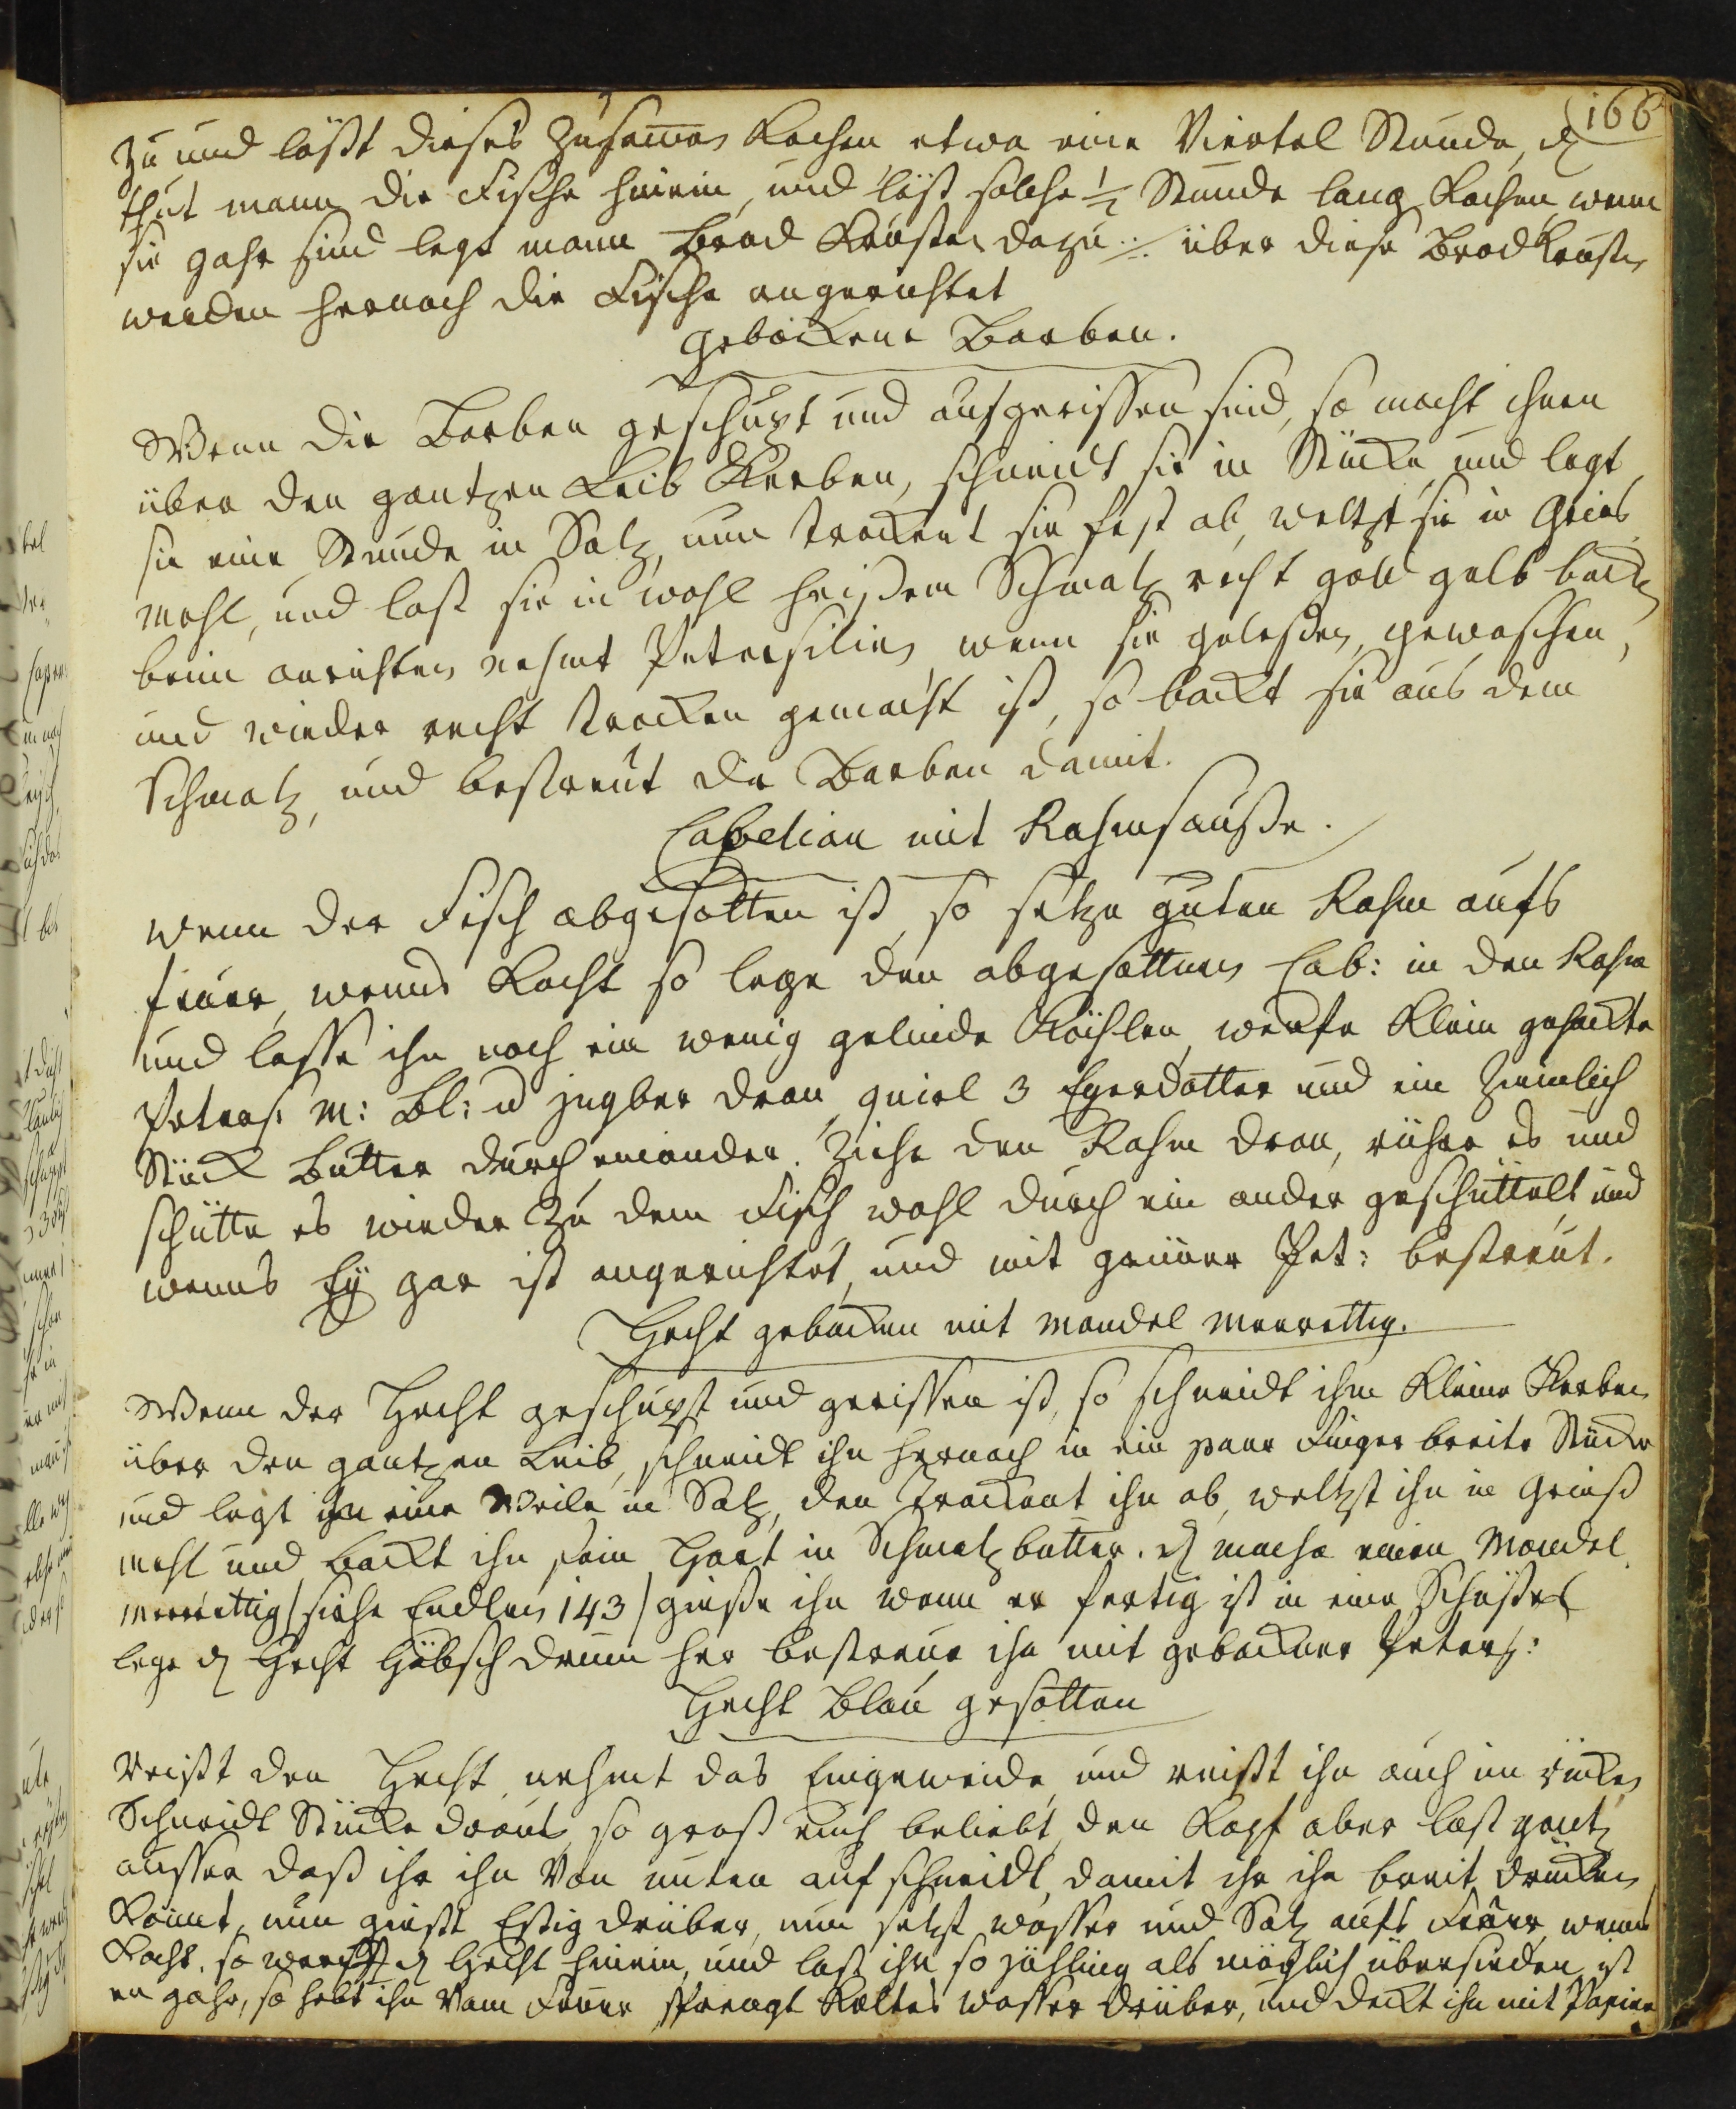 166
zu und läßt dieses zusamen Kochen etwa eine Viertel Stunde, d
thut mann die Fische hinein, und läst solche ½ Stunde lang Kochen, wenn
sie gahr sind legt mann Brod Krusten dazu ./. über diese Brod Krusten
werden hernach die Fische angerichtet
gebackene Barben.
Wenn die Barben geschupt und ausgerissen sind, so macht ihnen
über den gantzen Leib Kerben, schneidt sie in Stücke und legt
sie eine Stunde in Saltz, nun trockent sie fest ab, weltzt sie in Gries
mehl, und last sie in wohl heißem Schmaltz recht gold gelb backen
beim anrichten nehmt Petersilien, wenn sie gelesen, gewaschen,
und wieder recht trocken gemacht ist, so backt sie aus dem
Schmaltz, und bestreut die Barben damit.
Cabeliau mit Rahmsauße.
wenn der Fisch abgesotten ist, so setze guten Rahm aufs
feuer, wenns Kocht so lege den abgesottenen Cab: in den Rahm
und lasse ihn noch ein wenig gelinde Köchlen, werfe Klein gehackte
Peters: M: Bl: u Jngber dran, quirl 3 Eyerdotter und ein zimlich
Stück Butter durch einander. Ziehe den Rahm dran, rühre es und
schütte es wieder zu dem Fisch, wohl durch ein ander geschüttelt und
wenns Ey gar ist angerichtet, und mit grüner Pet: bestreut.
Hecht gebacken mit Mandel Meerettig.
Wenn der Hecht geschupt und gerissen ist, so schneidt ihm Kleine Kerben
über den gantzen Leib, schneidt ihn hernach in ein paar Finger breite Stücke
und legt ihn eine Weile in Saltz, den trockent ihn ab, weltzt ihn in Grieß
mehl und backt ihn fein Hart in Schmaltz butter. d mache einen Mandel
Merrettig /siehe Endten 143/ gieße ihn wenn er fertig ist in eine Schüßel
lege d Hecht Hübsch drum her bestreue ihn mit gebackner Peters:
Hecht Blau gesotten
Reißt den Hecht, nehmt das Eingeweide, und reißt ihn auch im rücken
Schneidt Stücke draus, so groß euch beliebt, den Kopf aber last gantz
ausser daß ihr ihn von unten auf schneidt, damit ihr ihn breit drücken
Könnt, nun gießt Eßig drüber, nun setzt wasser und Saltz aufs Feuer, wenns
Kocht. so werfft d Hecht hinein, und last ihn so jähling als möglich übersieden, ist
er gahr, so hebt ihn vom Feuer sprengt Kaltes wasser drüber, und deckt ihn mit Papier